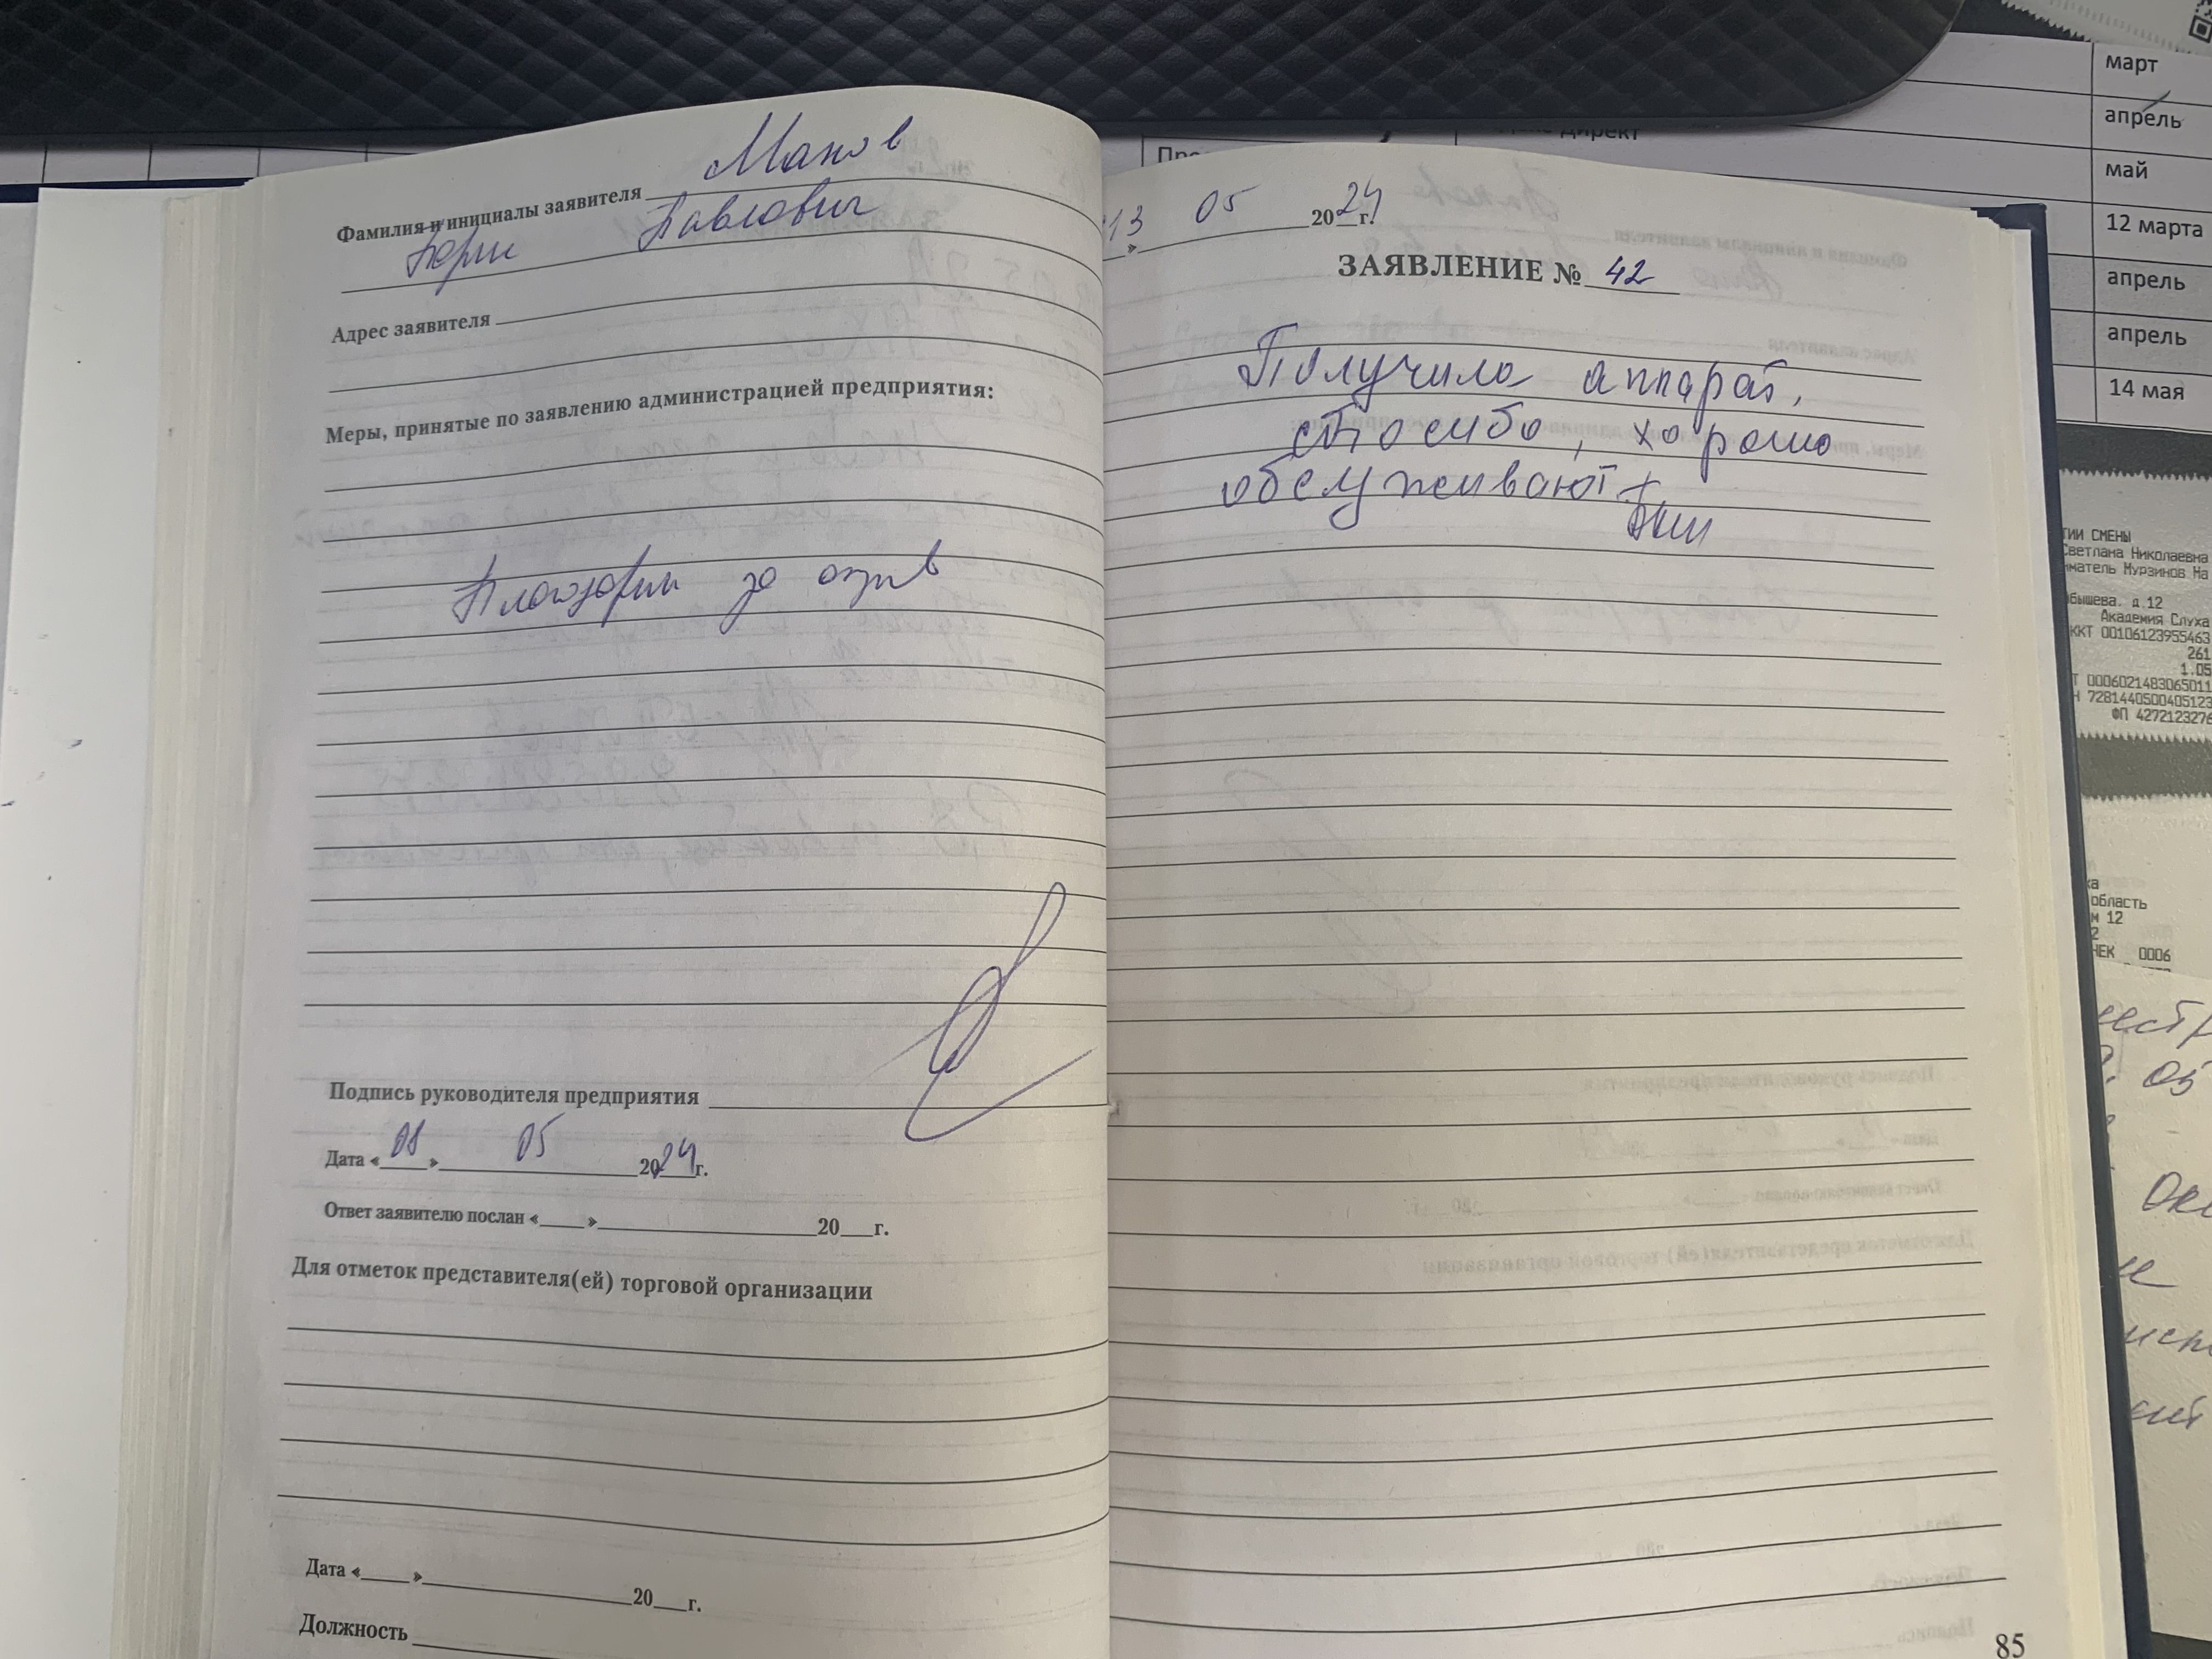 Фамилия и инициалы заявителя Манов
Павлович
Адрес заявителя
Меры, принятые по заявлению администрацией предприятия:
за отзыв
Подпись руководителя предприятия
Дата «08» 05 2024г.
Ответ заявителю послан «___» 20__г.
Для отметок представителя(ей) торговой организации
Дата «___» 20__г.
Должность
13 » 05 2024г.
ЗАЯВЛЕНИЕ № 42
Получила аппарат,
спасибо, хорошо
обслуживают
85
март
апрель
май
12 марта
апрель
апрель
14 мая
директ
ТИИ СМЕНЫ
Светлана Николаевна
иматель Мурзинов Ма
бышева. д.12
Академия Слуха
ККТ 00106123955463
261
1.05
Т 0006021483065011
Н 7281440500405123
ФП 4272123276
ка
область
м 12
2
ЧЕК 0006
05